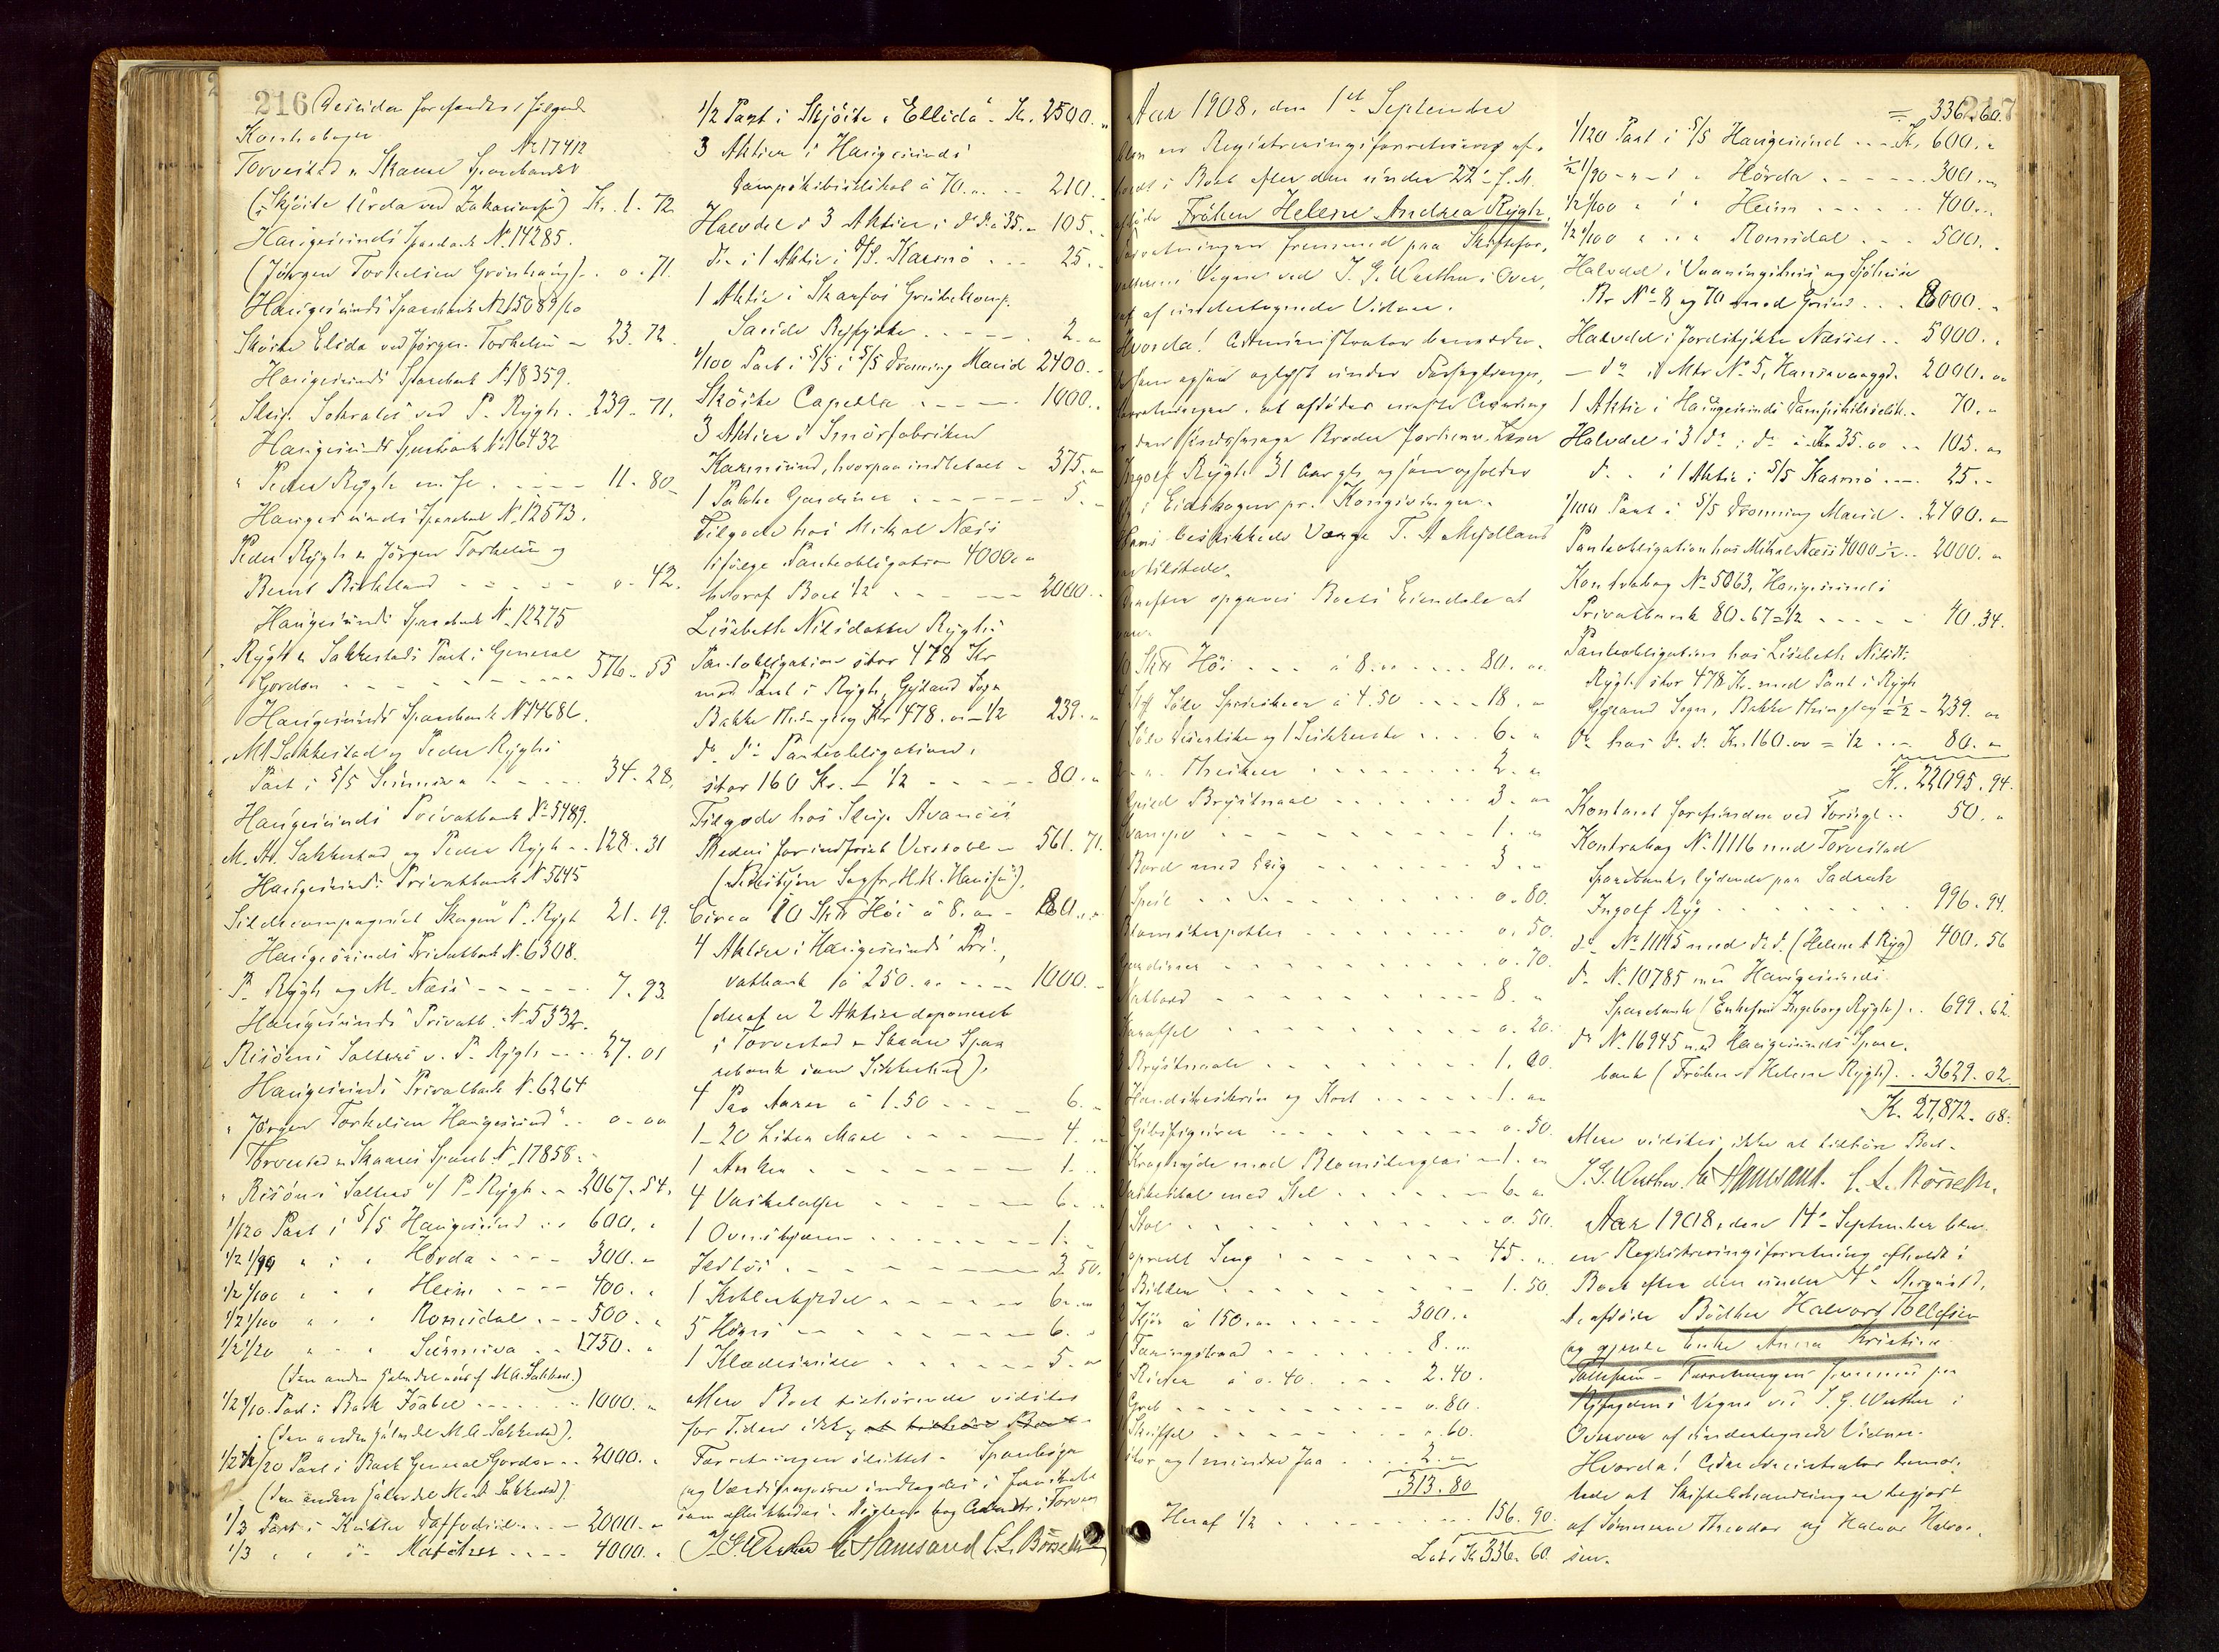 216 Desuden forefandtes følgende
Kontrabøger
No 17412
Torvestad & Skaare Sparebank
(Skjöite Urda ved Zakariasen) Kr. 1.72
Haugesunds Sparebank No 14285.
(Jörgen Torkelsen Grönhaug) . . 0.71.
Haugesunds Sparebank No 15089/10
Sköite Elida ved Jörgen Torkelsen - 23.72.
Haugesunds Sparebank No 18359.
Skip Sokrates ved P. Rygh . 239.71.
Haugesunds Sparebank No 16432
" Peder Rygh m. fl. . . . 11.80
Haugesunds Sparebank No 12573.
Peder Rygh & Jörgen Torkelsen og
Bernt Birkeland . . . . 0.42.
Haugesunds Sparebank No 12275
Rygh & Sakkestads Part i General
Gordon . . . . . 576.55
Haugesunds Sparebank No 14686.
M A Sakkestad og Peder Ryghs
Part i S/S Sunniva . . . . 34.28.
Haugesunds Privatbank No 5489.
M. A. Sakkestad og Peder Rygh . . 128.31
Haugesunds Privatbank No 5645
Sildecompagniet Skagen P. Rygh 21.19.
Haugesunds Privatbank No 6308.
P. Rygh og M. Næss . . . . 7.93
Haugesunds Privatb. No 5332.
Risöens Salteri v. P. Rygh . . . 27.01
Haugesunds Privatbank No 6264
" Jörgen Torkelsen Haugesund" . . 0.00
Torvestad & Skaares Spareb. No 17858.
" Risöens Salteri v/ P. Rygh . . 2067.54.
1/120 Part i S/S Haugesund . . 600. "
1/2 1/90 " " " Hörda . . . 300. "
1/2 1/100 " " " Heim . . . 400. "
1/2 1/100 " " " Romsdal . . . 500. "
1/2 1/20 " " " Sunniva . . 1750. "
(den anden Halvdel eies af M.A. Sakkest.)
1/2 1/10 Part i Bark Isabel . . . 1000. "
(den anden Halvdel M A Sakkestad).
1/2 1/20 Part i Bark General Gordon . . 2000. "
(den anden Halvdel M A Sakkestad)
1/3 Part i Kutter Daffodil . . . 2000. "
1/3 " " " . . . . 4000. "
1/2 Part i Skjöite "Ellida" Kr. 2500. "
3 Aktier i Haugesunds
Dampskibsselskab á 70. " . . 210. "
Halvdel i 3 Aktier i do do á 35. " 105. "
do i 1 Aktie i D/S. Karmö . . . 25. "
1 Aktie i Skarfos Grubekomp.
Sauda . . . . 2. "
1/100 Part i S/S Dronning Maud 2400. "
Sköite Capella . . . . 1000. "
3 Aktier i Smörfabriken
Karmsund, hvorpaa indbetalt - 375. "
1 Pakke Gardiner . . . . 5. "
Tilgode hos Mikal Næss
ifölge Panteobligation 4000. "
hvoraf Boet 1/2 . . . . 2000. "
Lisabeth Nilsdatter Ryghs
Panteobligation stor 478 Kr
med Pant i Rygh, Gyland Sogn
Bakke Thinglag Kr 478. " 1/2 239. "
do do Panteobligation,
stor 160 Kr. - 1/2 . . . . 80. "
Tilgode hos Skip Avances
Rederi for indfriet Vexel - 561.71.
(, Sagfr. H.K. Hansen).
Circa 10 Skt Höi á 8. " - 80. "
4 Aktier i Haugesunds Pri-
vatbank á 250. " . . . 1000. "
(deraf er 2 Aktier deponeret
i Torvestad & Skaare Spa-
rebank som Sikkerhed).
4 Par Aarer á 1.50 . . . . 6. "
1- 20 Liter Maal . . . . 4. "
1 Anker . . . . 1. "
4 Vaskebaljer . . . . 6. "
1 Ovnskjærm . . . . 1. "
. . . . 3.50.
1 Kobberkjedel . . . . 6. "
5 Höns . . . . 6. "
1 Klæderulle . . . . 5. "
Mere Boet tilhörende vidstes
for Tiden ikke, at tilhöre Boet.
Forretningen sluttet - Sparebøger
og Værdipapirer indlagdes i
som afleveredes Nöglene
J.G. Werther E Hamsand C.L. Börseth
217
Aar 1908, den 1st September
blev en Registreringsforretning af-
holdt i Boet efter den under 22 - f. M.
afdöde Fröken Helene Andrea Rygh.
Forretningen fremmed paa Skiftefor-
valterens Vegne ved J. G. Werther i Over-
vær af undertegnede Vidner.
Hvorda! Administrator bemærke-
de som ogsaa oplyst under Forseglings-
forretningen, at afdödes eneste Arving
er den sindssvage Broder
Ingolf Rygh 31 Aar gl. og som opholder
sig i Eidskogen pr. Kongsvinger.
Hans beskikkede Værge T. A. Mydland
var tilstede.
Derefter opgaves Boets Eiendele at
være.
10 Skt Höi . . . á 8. " . . . 80. "
4 Stk Sölv Spiseskeer á 4.50 . . . 18. "
1 Sölv og 1 . . . 6. "
Theskeer . . . . 2. "
Guld Brystnaal . . . . 3. "
. . . . 1. "
Bord med Dug . . . . 3. "
Speil . . . . 0.80.
Blomsterpotter . . . . 0.50.
Gardiner . . . . 0.70.
Natbord . . . . 8. "
Karaffel . . . . 0.20.
Brystnaale . . . . 1.00.
Handskeskrin og Kort . . . . 1. "
2 Gibsfigurer . . . . 0.50.
Kraghylde med Blomsterglas - 1. "
Vaskestel med Stel . . . . 6. "
1 Stol . . . . 0.50.
opredt Seng . . . . 45. "
2 Billeder . . . . 1.50.
2 Kjör á 150. " . . . 300. "
1 . . . . 8. "
6 á 0.40 . . . 2.40.
Greb . . . . 0.80.
Skuffel . . . . 0.60.
stor og 1 mindre . . . 2. "
313.80
Heraf 1/2 . . . . 156.90.
Lats Kr 336.60
= 336.60.
1/120 Part i S/S Haugesund . . . Kr. 600. "
1/2 1/90 - " - i " Hörda . . . . 300. "
1/2 1/100 " i " Heim . . . . 400. "
1/2 1/100 " " " Romsdal . . . 500. "
Halvdel i Vaaningshus og Sjöhus
Br No 8 og 70 med Grund . . . 8000. "
Halvdel i Jordstykke Næsset . . 5000. "
- do i Mtr No 5, Hansavaagd. 2000. "
1 Aktie i Haugesunds Dampskibsselsk. - 70. "
Halvdel i 3 do : do á Kr 35.00 . . 105. "
do . i 1 Aktie i S/S Karmö . . . 25. "
1/100 Part i S/S Dronning Maud . 2400. "
Panteobligation hos Mikal Næss 4000 1/2 . . 2000. "
Kontrabog No 5063, Haugesunds
Privatbank 80.67 = 1/2 . . . . 40.34.
Panteobligation hos Lisabeth Nilsdt.
Rygh stor 478 Kr. med Pant i Rygh
Gyland Sogn, Bakke Thinglag = 1/2 - 239. "
do hos do do Kr. 160.00 = 1/2 . . . 80. "
Kr. 22095.94.
Kontant forefunden ved Forsegl. . . 50. "
Kontrabog No 11116 med Torvestad
Sparebank, lydende paa
Ingolf Ryg . . . . 996.94.
do No 11115 med do do. (Helene A Ryg) 400.56
do No 10785 med Haugesunds
Sparebank (Enkefru Ingeborg Rygh) . . 699.62.
do No 16945 med Haugesunds Spare-
bank (Fröken A Helene Rygh) . . 3629.02.
Kr. 27,872.08.
Mere vidstes ikke at tilhöre Boet.
J. G. Werther. E Hamsand. C. L. Börseth.
Aar 1908, den 14 - September blev
en Registreringsforretning afholdt i
Boet efter den under 4 -
afdöde Bödker Halvor Tollefsen
og Enke Anna Kristine
Tollefsen - Forretningen fremmed paa
Vegne ved J. G. Werther i
Overvær af undertegnede Vidner.
Hvorda! Administrator bemær-
kede at Skiftebehandlingen begjært
af Sönnerne Theodor og Halvor Halvor-
sen.